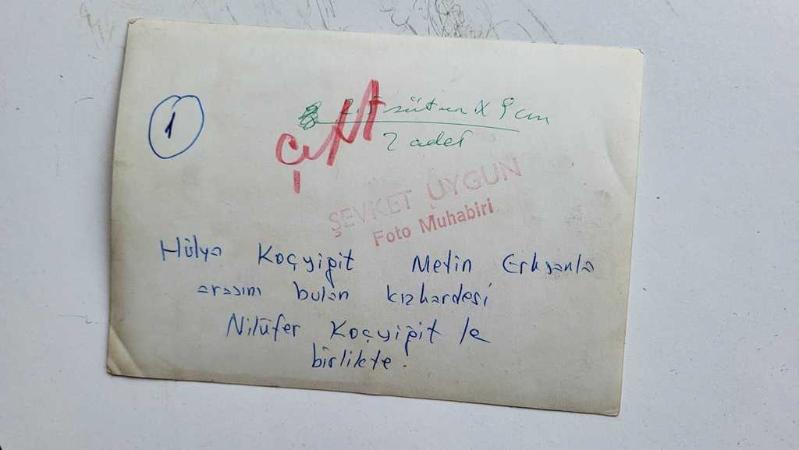 1
sütun x 9 cm
2 adet
Çift
ŞEVKET UYGUN
Foto Muhabiri
Hülya Koçyiğit Metin Erksanla
arasını bulan kızkardesi
Nilüfer Koçyiğit le
birlikte.